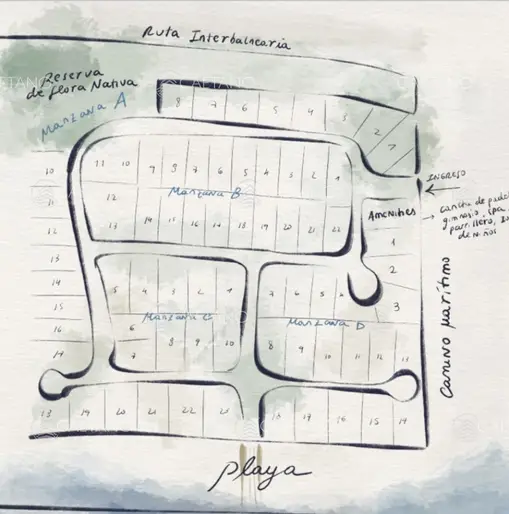 Ruta Interbalnearia
Reserva
de flora Nativa
Manzana A
8 7 6 5 4 3 2 1
INGRESO
Amenities
cancha de padel
gimnasio, spa
parrillero,
de niños
11 10 9 8 7 6 5 4 3 2 1
Manzana B
12
13 14 15 16 17 18 19 20 21 22
10
11
12
13
14
15
16
17
1
2
3
Camino Marítimo
5 4 3 2 1
Manzana C
6
7 8 9 10
7 6 5 4
Manzana D
8 9 10 11 12 13
18 19 20 21 22 23
18 17 16 15 14
playa